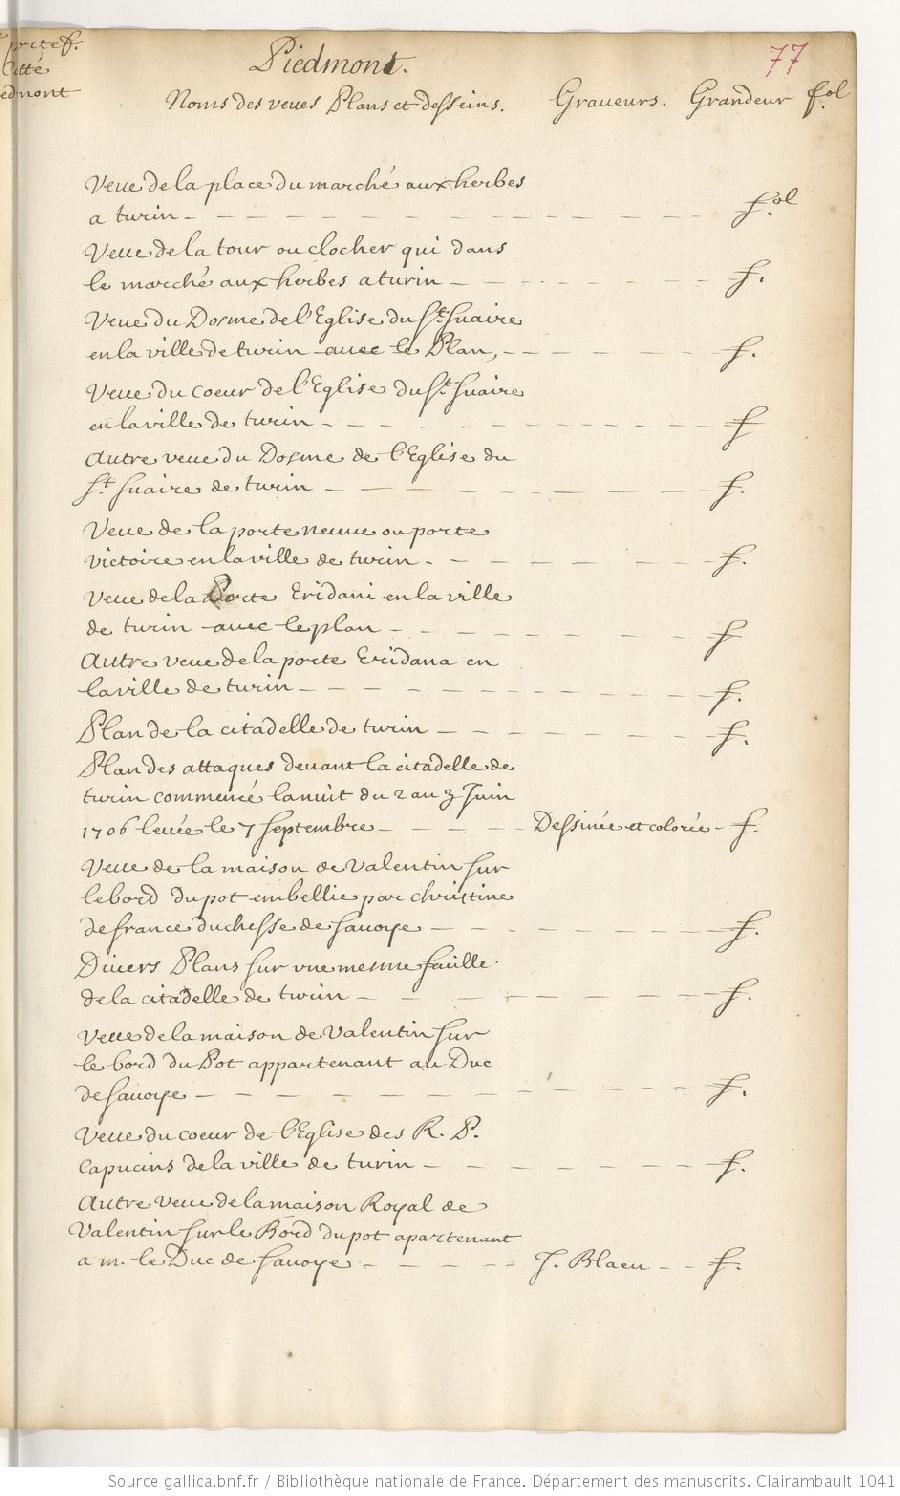 Piedmont.
77
Noms des veues Plans et desseins. Graueurs. Grandeur fol.
Veue de la place du marché aux herbes
a turin - - - - - - - - - - - - - f.ol
Veue de la tour ou clocher qui dans
le marché aux herbes a turin - - - - - - - f.
Veue du Dosme de l'Eglise du St. Suaire
en la ville de turin auec le Plan, - - - - - - f.
Veue du coeur de l'Eglise du St. Suaire
en la ville de turin - - - - - - - - - - f
autre veue du Dosme de l'Eglise du
St. Suaire de turin - - - - - - - - - f.
Veue de la porte neuue ou porte
victoire en la ville de turin. - - - - - - - f.
Veue de la Porte Eridani en la ville
de turin auec le plan - - - - - - - - - f
autre veue de la porte Eridana en
la ville de turin - - - - - - - - - - - f.
Plan de la citadelle de turin - - - - - - - f.
Plan des attaques deuant la citadelle de
turin commencé la nuit du 2 au 3 Juin
1706 leuée le 7 Septembre - - - - Dessinée et colorée - f.
Veue de la maison de Valentin sur
le bord du pot embellie par christine
de france duchesse de sauoye - - - - - - - - f.
Diuers Plans sur vne mesme feuille
de la citadelle de turin - - - - - - - - f.
Veue de la maison de Valentin sur
le bord du Pot appartenant au Duc
de sauoye - - - - - - - - - - - - f.
Veue du coeur de l'Eglise des R. P.
capucins de la ville de turin - - - - - - - f.
autre veue de la maison Royal de
Valentin sur le Bord du pot apartenant
a m. le Duc de sauoye - - - - - J. Blaeu - - f.
Source gallica.bnf.fr / Bibliothèque nationale de France. Département des manuscrits. Clairambault 1041